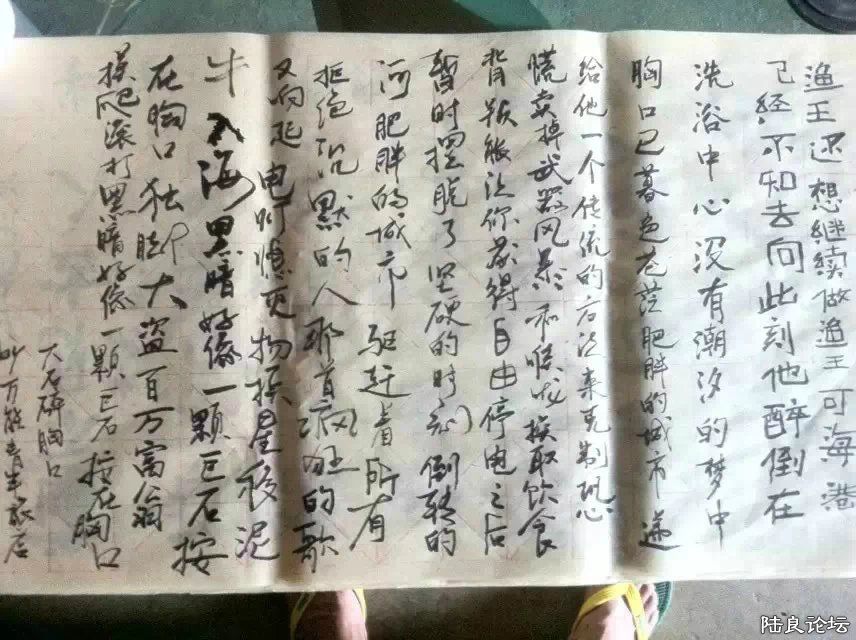 渔王还想继续做渔王可海港
已经不知去向此刻他醉倒在
洗浴中心没有潮汐的梦中
胸口已暮色苍茫肥胖的城市递
给他一个传统的方法来克制恐
慌卖掉武器风暴和喉咙换取饮食
背叛能让你获得自由停电之后
暂时摆脱了坚硬的时刻倒转的
河肥胖的城市驱赶着所有
拒绝沉默的人那首疯狂的歌
又响起电灯熄灭物换星移泥
牛入海黑暗好像一颗巨石按
在胸口独断大盗百万富翁
摸爬滚打黑暗好像一颗巨石按在胸口
大石碎胸口
万能青年旅店
陆良论坛